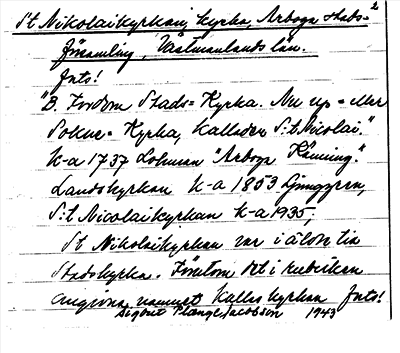 2
St Nikolaikyrkan, kyrka, Arboga stads-
församling, Västmanlands län.
Juts!
"B. Fordom Stads=Kyrka. Nu up=eller
Sokne=Kyrka, kallades S:t Nicolai."
K-a 1737 Lohman "Arboga Känning."
Landskyrkan K-a 1853 Ljunggren,
S:t Nicolaikyrkan K-a 1935,
St Nikolaikyrkan var i äldre tid
Stadskyrka. Förutom det i rubriken
angivna namnet kallas kyrkan Juts!
Sigurd Plange Jacobson 1943